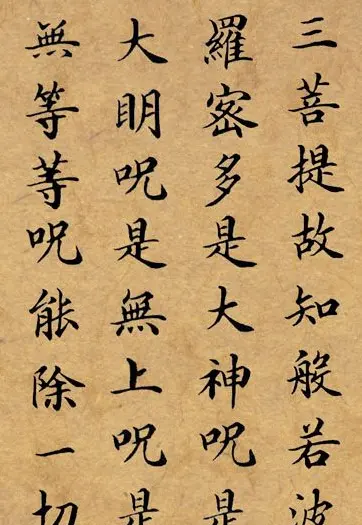 三菩提故知般若波
羅密多是大神呪是
大明呪是無上呪是
無等等呪能除一切